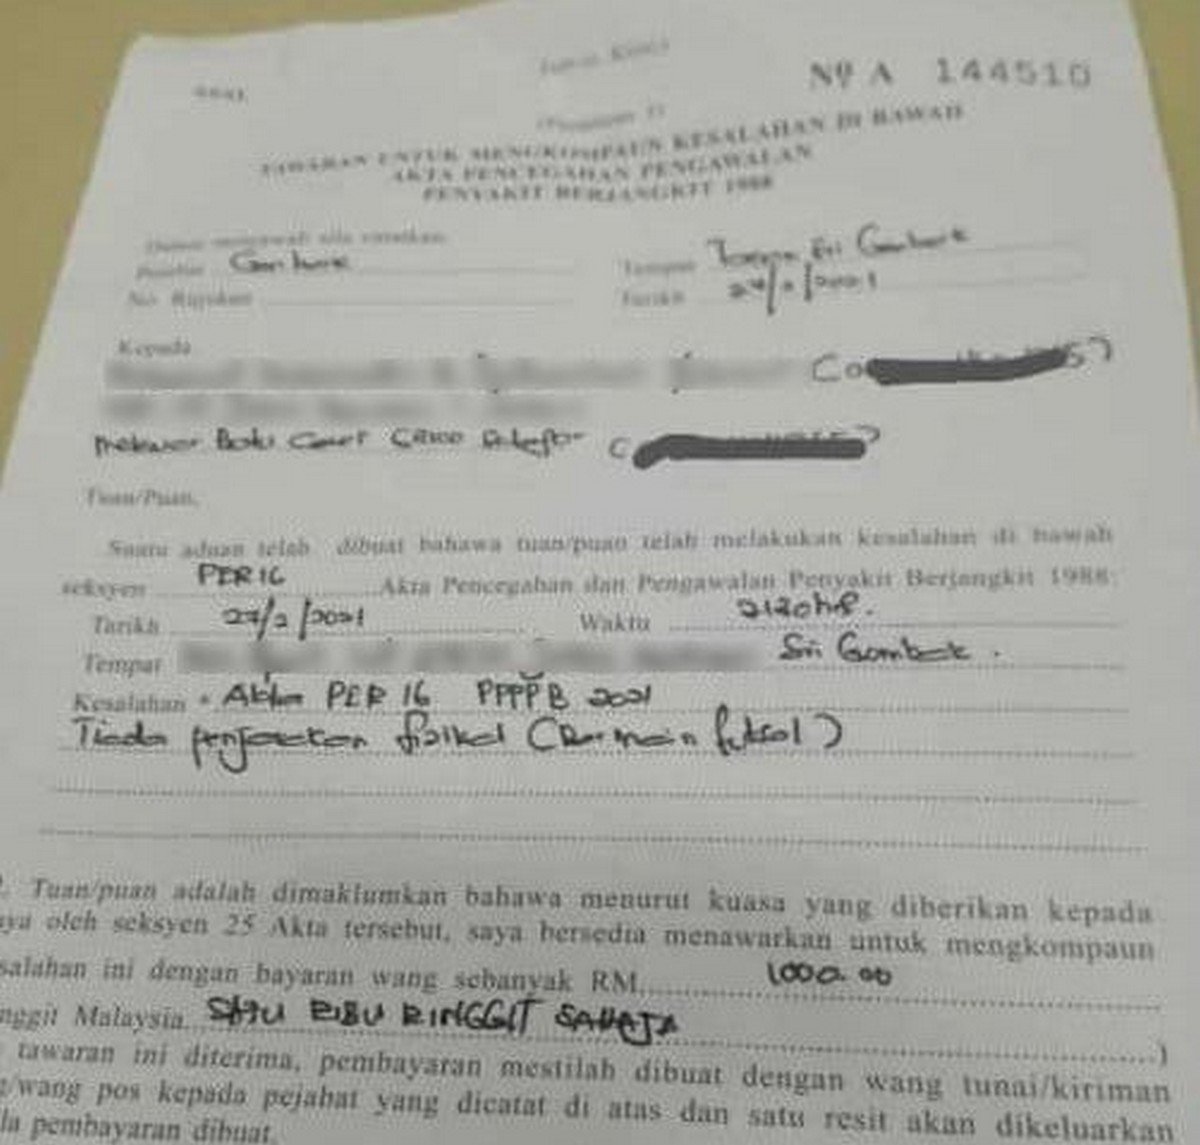 Nº A 144510
TAWARAN UNTUK MENGKOMPAUN KESALAHAN DI BAWAH
AKTA PENCEGAHAN PENGAWALAN
PENYAKIT BERJANGKIT 1988
Gombak
Tempat Taman Sri Gombak
No Rujukan
Tarikh 27/2/2021
Kepada
Batu Caves 68100 Selangor
Tuan/Puan,
Suatu aduan telah dibuat bahawa tuan/puan telah melakukan kesalahan di bawah
seksyen PER 16 Akta Pencegahan dan Pengawalan Penyakit Berjangkit 1988:
Tarikh 27/2/2021 Waktu 2120hrs.
Tempat Sri Gombak.
Kesalahan PER 16 PPPPB 2021
Tiada penjarakan fizikal (Bermain futsal)
Tuan/puan adalah dimaklumkan bahawa menurut kuasa yang diberikan kepada
aya oleh seksyen 25 Akta tersebut, saya bersedia menawarkan untuk mengkompaun
salahan ini dengan bayaran wang sebanyak RM 1000.00
nggit Malaysia SATU RIBU RINGGIT SAHAJA )
tawaran ini diterima, pembayaran mestilah dibuat dengan wang tunai/kiriman
g/wang pos kepada pejabat yang dicatat di atas dan satu resit akan dikeluarkan
la pembayaran dibuat.